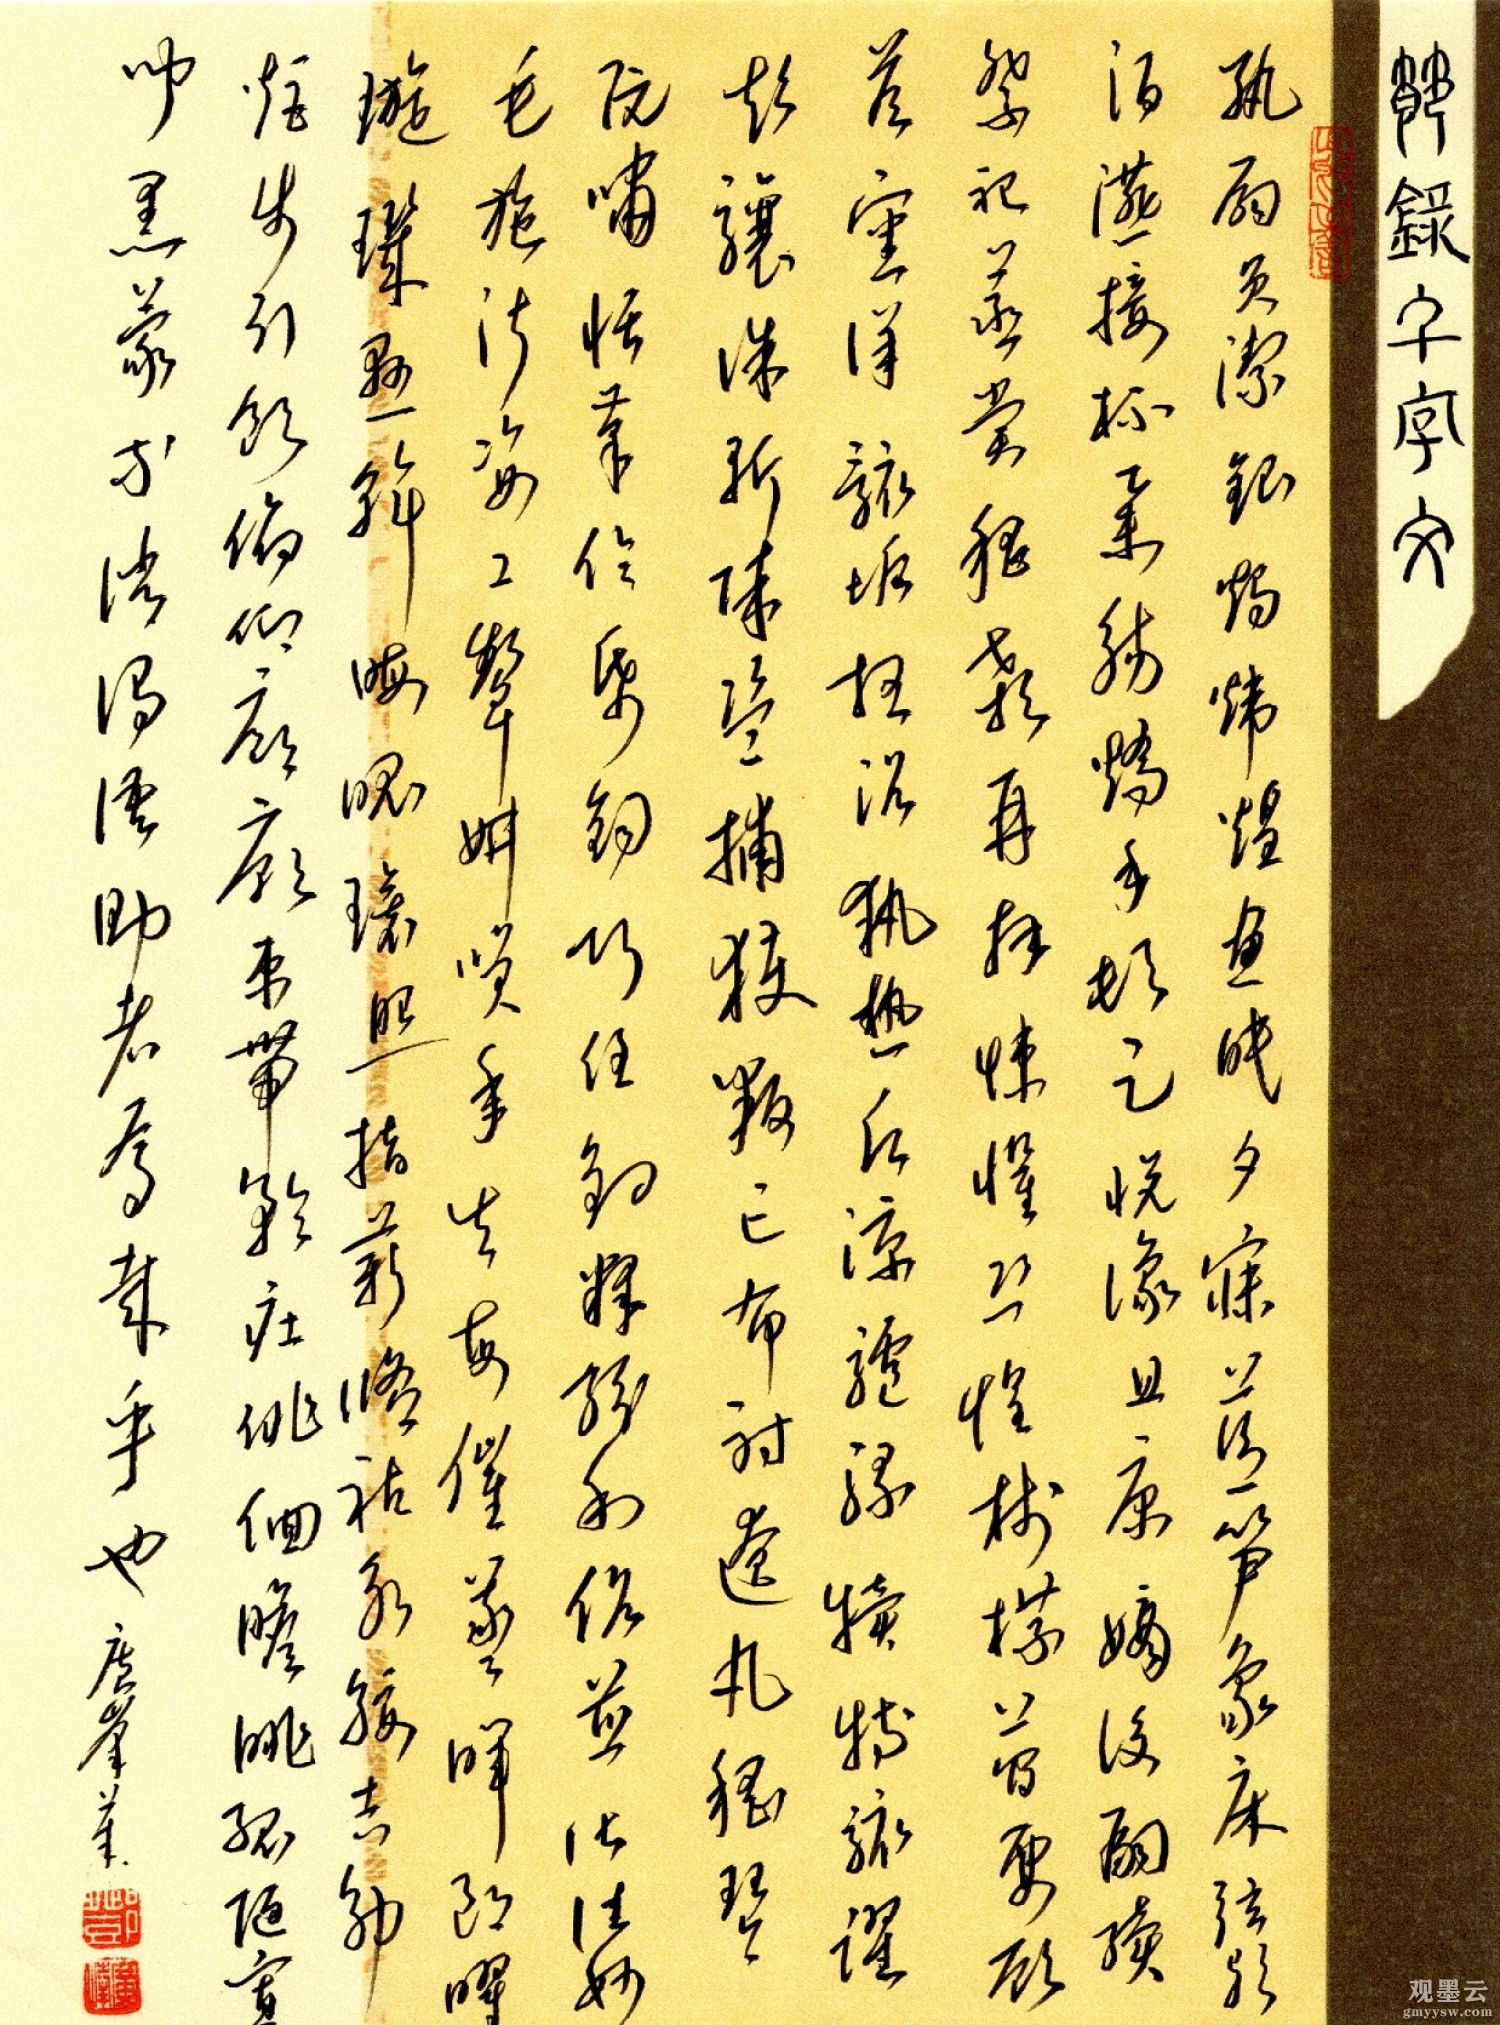 節錄千字文
紈扇員潔銀燭煒煌晝眠夕寐藍筍象床弦歌
酒讌接杯舉觴矯手頓足悅豫且康嫡後嗣續
祭祀蒸嘗稽顙再拜悚懼恐惶牋牒簡要顧
答審詳骸垢想浴執熱願涼驢騾犢特駭躍
超驤誅斬賊盜捕獲叛亡布射遼丸嵇琴
阮嘯恬筆倫紙鈞巧任釣釋紛利俗並皆佳妙
毛施淑姿工顰妍笑年矢每催曦暉朗曜
璇璣懸斡晦魄環照指薪修祜永綏吉劭
矩步引領俯仰廊廟束帶矜莊徘徊瞻眺孤陋寡
聞愚蒙等誚謂語助者焉哉乎也
观墨云
gmyysw.com